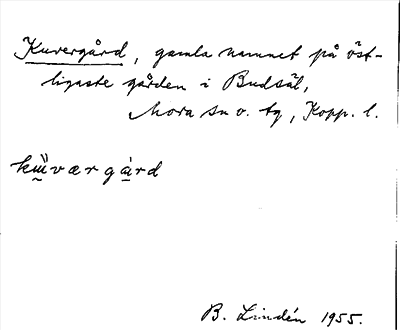 Kuvergård, gamla namnet på öst-
ligaste gården i Budsäl,
Mora sn o. tg, Kopp. l.
kɯ̈værgård
B. Lindén 1955.